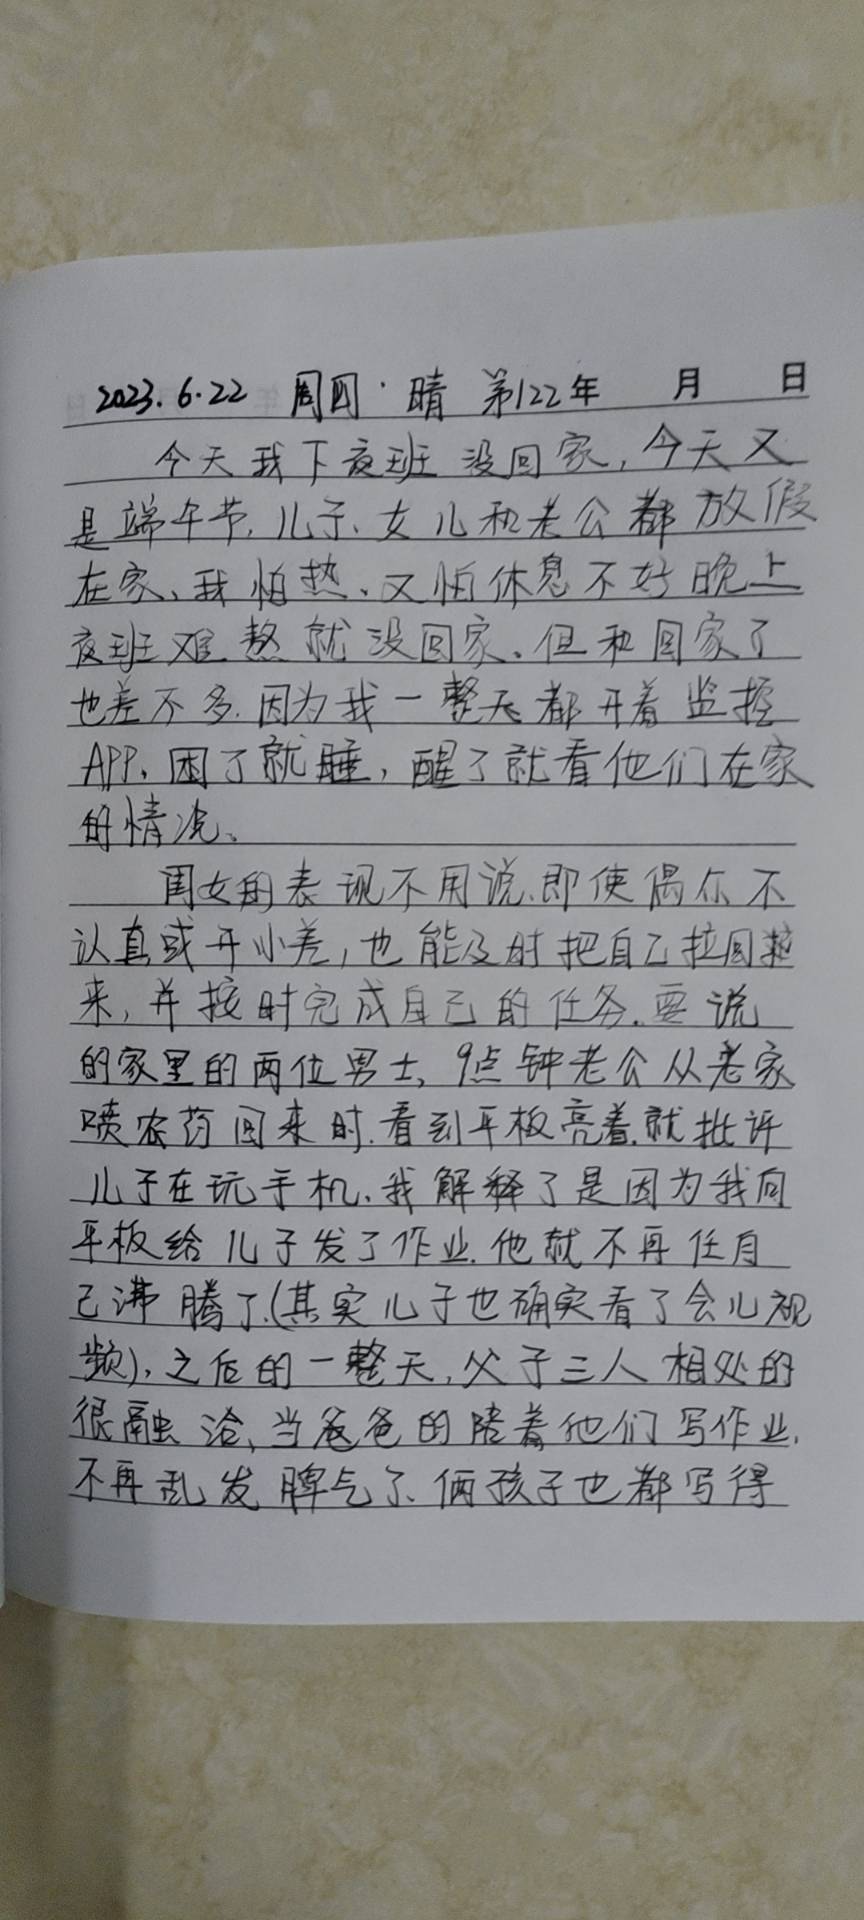 2023.6.22 周四·晴 第122年 月 日
今天我下夜班没回家,今天又
是端午节,儿子、女儿和老公都放假
在家、我怕热、又怕休息不好晚上
夜班难熬就没回家。但和回家了
也差不多.因为我一整天都开着监控
APP、困了就睡,醒了就看他们在家
的情况。
闺女的表现不用说、即使偶尔不
认真或开小差,也能及时把自己拉回
来,并按时完成自己的任务.要说
的家里的两位男士,9点钟老公从老家
喷农药回来时.看到平板亮着.就批评
儿子在玩手机、我解释了是因为我向
平板给儿子发了作业.他就不再任自
己沸腾了.(其实儿子也确实看了会儿视
频),之后的一整天,父子三人相处的
很融洽、当爸爸的陪着他们写作业.
不再乱发脾气了、俩孩子也都写得